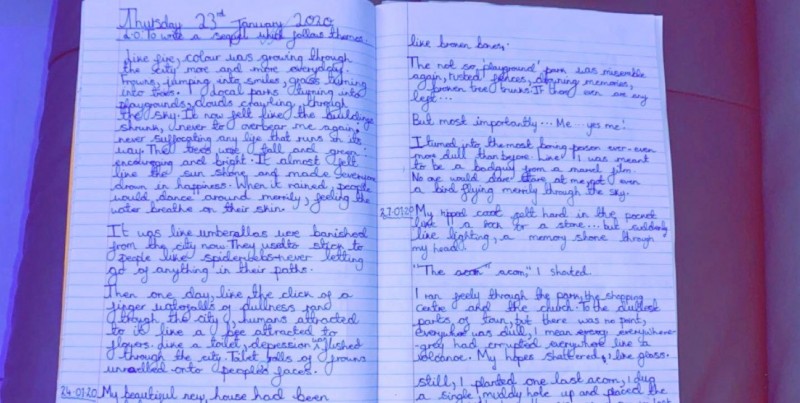 Thursday 23rd January 2020
L.O. To write a sequel which follows themes.
Like fire, colour was growing through
the city more and more everyday.
Frowns jumping into smiles, grass turning
into trees. Local parks turning into
playgrounds, clouds crawling through
the sky. It now felt like the buildings
shrunk, never to overbear me again,
never suffocating any lye that runs in its
way. The trees were tall and green
encouraging and bright. It almost felt
like the sun shone and made everyone
drown in happiness. When it rained people
would dance around merrily, feeling the
water breathe on their skin.
It was like umberallas were banished
from the city now. They used to stick to
people like spiderwebs never letting
go of anything in their paths.
Then one day, like the click of a
finger waterfalls of dullness ran
through the city, humans attracted
to it like a bee attracted to
flowers. Like a toilet, depression was flushed
through the city. Toilet rolls of frowns
unravelled onto people's faces.
24.01.20 My beautiful new house had been
like broken bones.
The not so 'playground' park was miserable
again, rusted fences, drowning memories,
broken tree trunks. If there even are any
left...
But most importantly... Me... yes me!
I turned into the most boring person ever - even
more dull than before. Like I was meant
to be a badguy from a marvel film.
No one would dare stare at me, not even
a bird flying merrily through the sky.
27.01.20 My ripped coat felt hard in the pocket
like a rock or a stone... but suddenly
like lighting, a memory shone through
my head.
"The acorn, acorn," I shouted.
I ran feely through the park, the shopping
centre and the church. To the dullest
parts of town, but there was no point,
everywhere was dull, I mean everywhere-
grey had corrupted everywhere like a
volcanoe. My hopes shattered, like glass.
still, I planted one last acorn, I dug
a single, muddy hole up and placed the